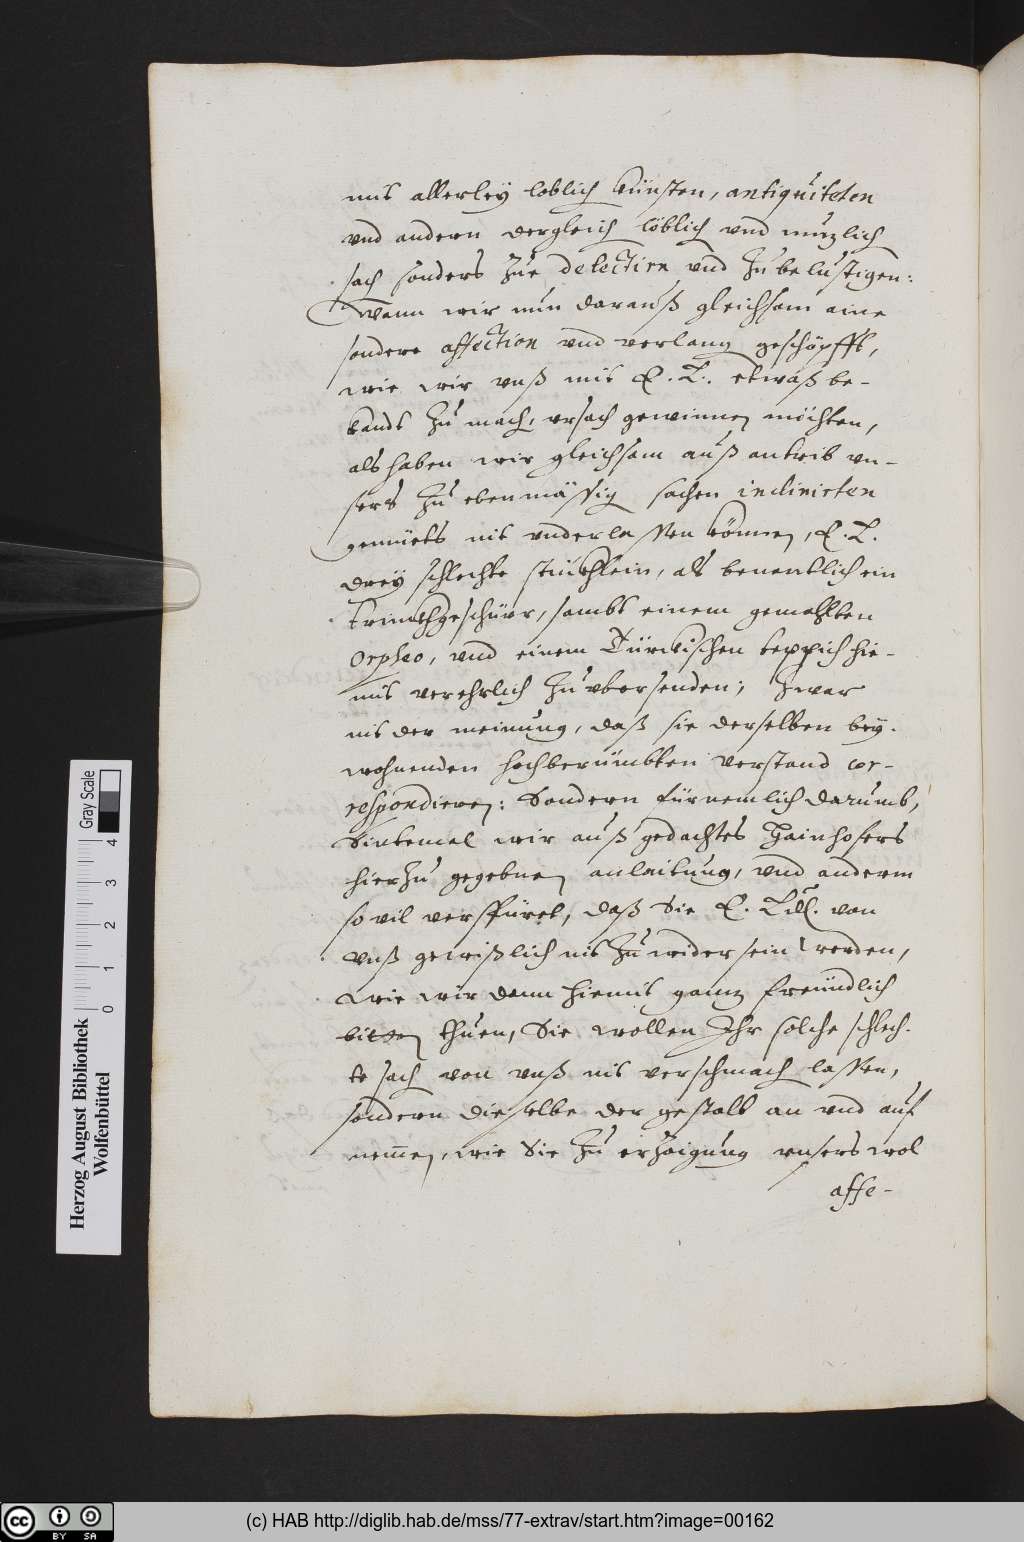 mit allerleÿ loblich künsten, antiquiteten
vnd andern dergleich löblich vnd nuzlich
sach sonders zue delectirn vnd zu belustigen:
Wann wir nun darauß gleichsam eine
sondere affection vnd verlang geschöpfft,
wie wir vnß mit E. L. etwaß be-
kandt zu mach, vrsach gewinnen möchten,
als haben wir gleichsam auß antrib vn-
sers zu ebenmässig sachen inclinirten
gemüets nit vnderlassen können, E. L.
dreÿ schlechte stückhlein, als benentlich ein
trinckhgeschürr, sambt einem gemahlten
Orpheo, vnd einem Türckischen teppich hie-
mit verehrlich zu vbersenden; zwar
nit der meinung, daß sie derselben beÿ-
wohnenden hochberümbten verstand cor-
respondieren: Sondern fürnemlich darumb,
Sintemal wir auß gedachtes Hainhofers
hierzu gegebnen anleitung, vnd anderm
so vil verspüret, daß Sie E. Ld. von
vnß gewißlich nit zu wider sein werden,
Wie wir dann hiemit ganz freündlich
bitten thuen, Sie wollen Ihr solche schlech-
te sach von vnß nit verschmach lassen,
sondern dieselbe der gestalt an vnd auf
nemen, wie Sie zu erzaigung vnsers wol
affe-
Herzog August Bibliothek
Wolfenbüttel
0 1 2 3 4
Gray Scale
cc BY SA
(c) HAB http://diglib.hab.de/mss/77-extrav/start.htm?image=00162